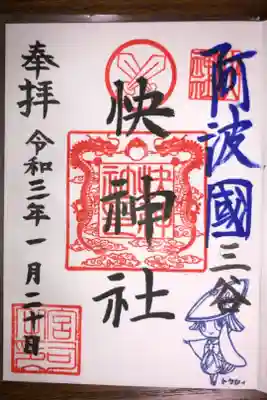 阿波國三谷
快神社
奉拝 令和三年一月二十日
トクシィ